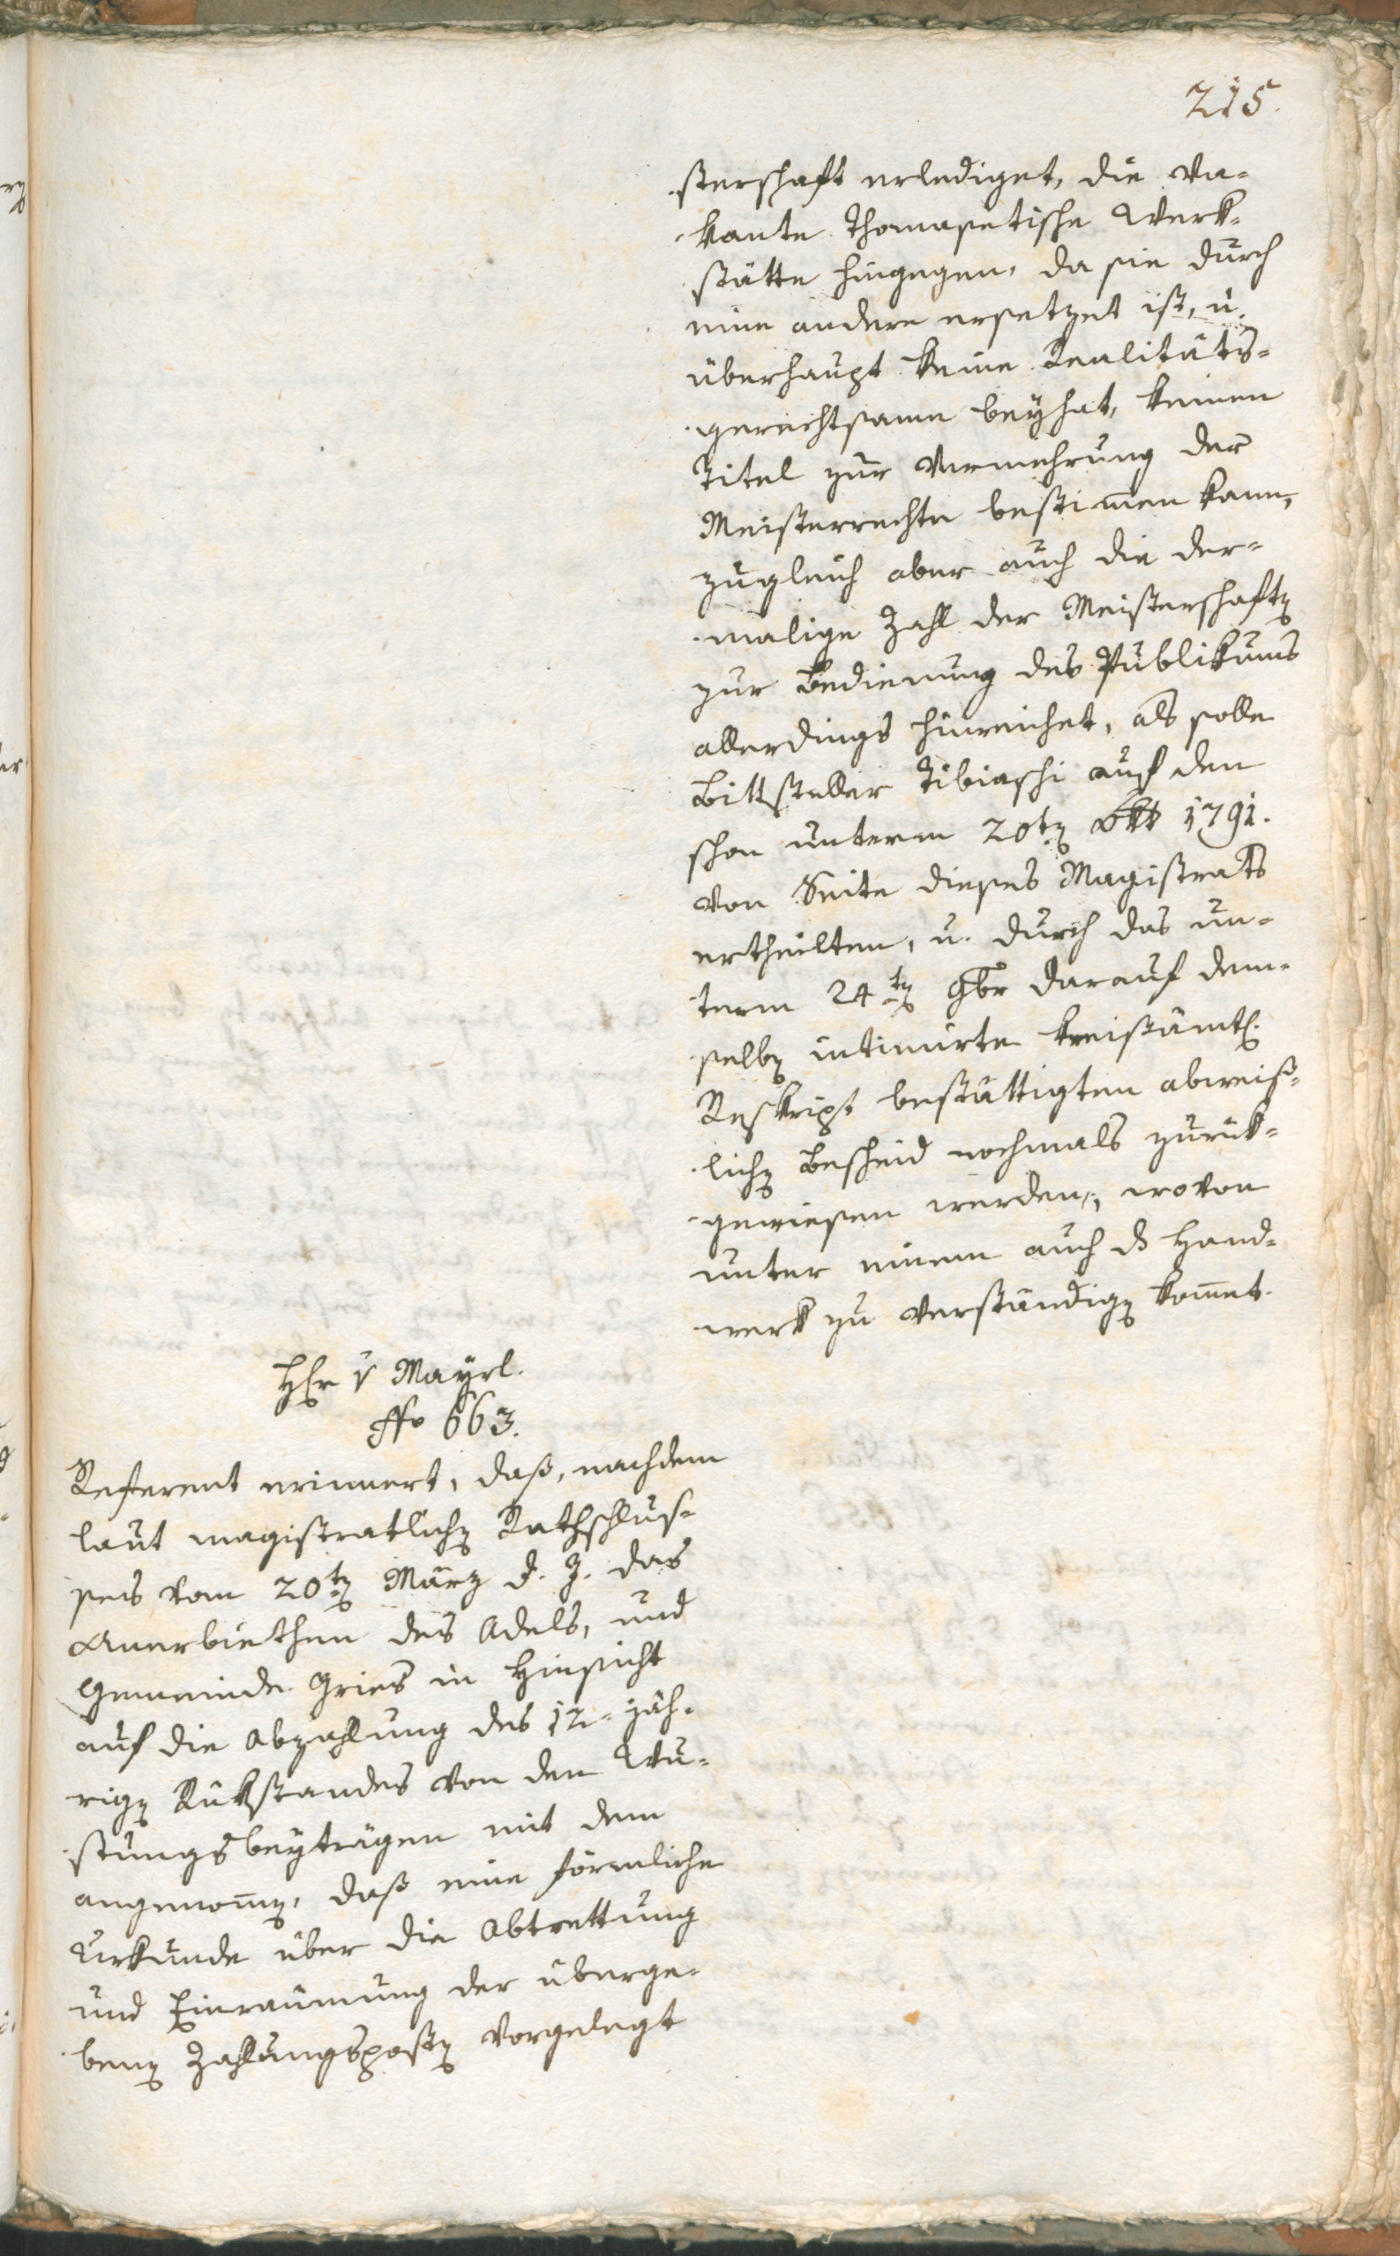 215.
sterschaft erlediget, die va-
kante Thomasetische Werk-
stätte hingegen, da sie durch
eine andere ersetzet ist, u.
überhaupt keine Realitäts-
gerechtsame beyhat, keinen
Titel zur Vermehrung der
Meisterrechte bestimmen kann,
zugleich aber auch die der-
malige Zahl der Meisterschaften
zur Bedienung des Publikums
allerdings hinreichet, als solle
Bittsteller Tibiaschi auf den
schon unterm 20ten Okt 1791.
von Seite dieses Magistrats
ertheilten, u. durch das un-
term 24ten 9br darauf dem-
selben intimirte kreisämtl.
Reskript bestättigten abweis-
lichen Bescheid nochmals zurük-
gewiesen werden, wovon
unter einem auch das Hand-
werk zu verständigen kommt.
Hr v Mayrl.
No 663.
Referent erinnert, daß, nachdem
laut magistratlichen Rathschlus-
ses vom 20ten März d. J. das
Anerbiethen des Adels, und
Gemeinde Gries in Hinsicht
auf die Abzahlung des 12-jäh-
rigen Rükstandes von den Wu-
stungsbeyträgen mit dem
angenommen, daß eine förmliche
Urkunde über die Abtrettung
und Einraumung der überge-
benen Zahlungsposten vorgelegt